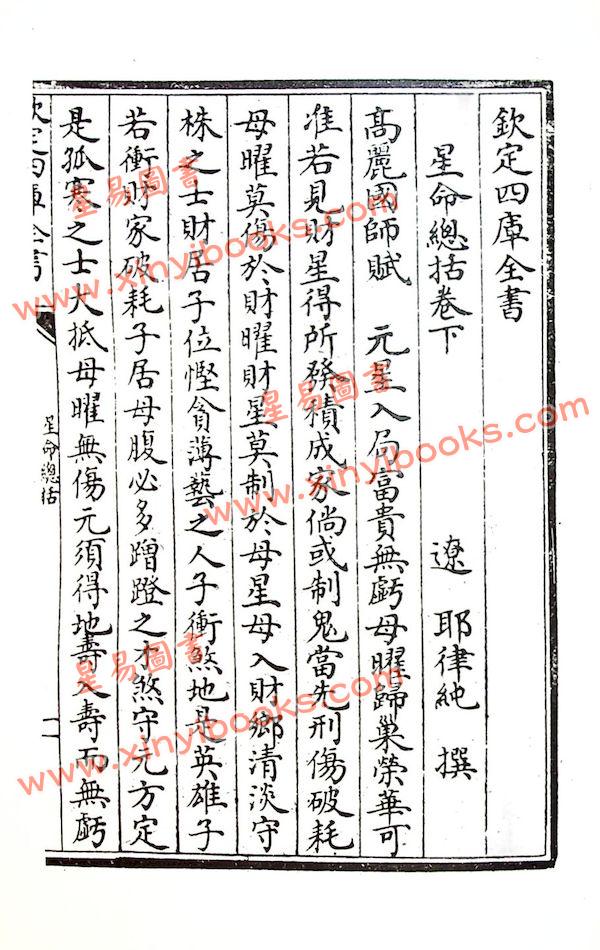 欽定四庫全書
星命總括卷下
遼 耶律純 撰
高麗國師賦 元星入局富貴無虧母曜歸巢榮華可
准若見財星得所發積成家倘或制鬼當先刑傷破耗
母曜莫傷於財曜財星莫制於母星母入財鄉清淡守
株之士財居子位慳貪薄藝之人子衝煞地是英雄子
若衝財家破耗子居母腹必多蹭蹬之才煞守元方定
是孤寒之士大抵母曜無傷元須得地壽入壽而無虧
欽定四庫全書
星命總括
一
星易圖書
www.xinyibooks.com
星易圖書
www.xinyibooks.com
星易圖書
www.xinyibooks.com